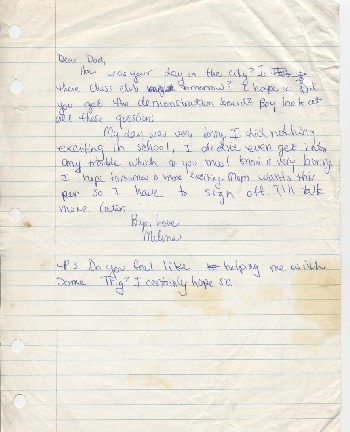 Dear Dad,
How was your day in the city? Is
there chess club tomorrow? I hope so. Did
you get the demonstration board? Boy look at
all these questions.
My day was very boring. I did nothing
exciting in school, I didn't even get into
any trouble which as you must know is very boring
I hope tomorrow is more exciting. Mom wants this
pen so I have to sign off. I'll talk
more later.
Bye, Love
P.S. Do you feel like helping me with
some Trig? I certainly hope so.